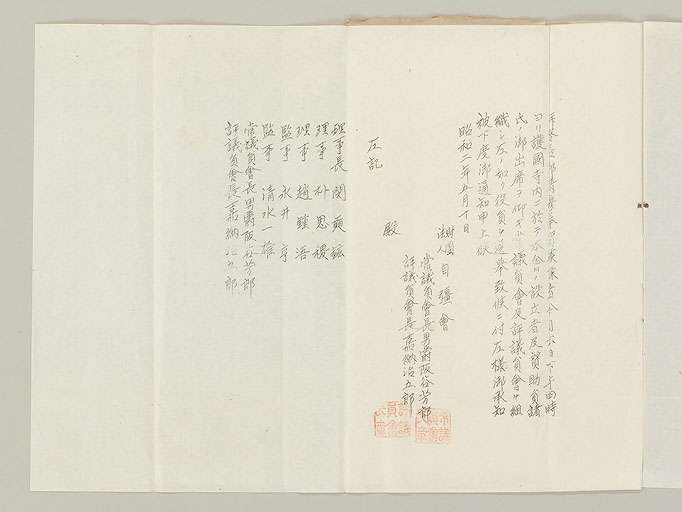 ヨリ護國寺内ニ於テ本會ノ設立者及賛助員諸
氏ノ御出席ヲ仰ギ常議員會及評議員會ヲ組
織シ左ノ如ク役員ヲ選擧致候ニ付左樣御承知
被下度御通知申上候
昭和二年五月十日
財團法人自彊會
常議員會長男爵阪谷芳郎
評議員會長嘉納治五郎
殿
左記
理事長 閔 鋐
理事 朴思稷
理事 趙鍾浯
監事 永井亨
監事 清水一雄
常議員會長男爵阪谷芳郎
評議員會長嘉納治五郎
常議員會長章
評議員會長章